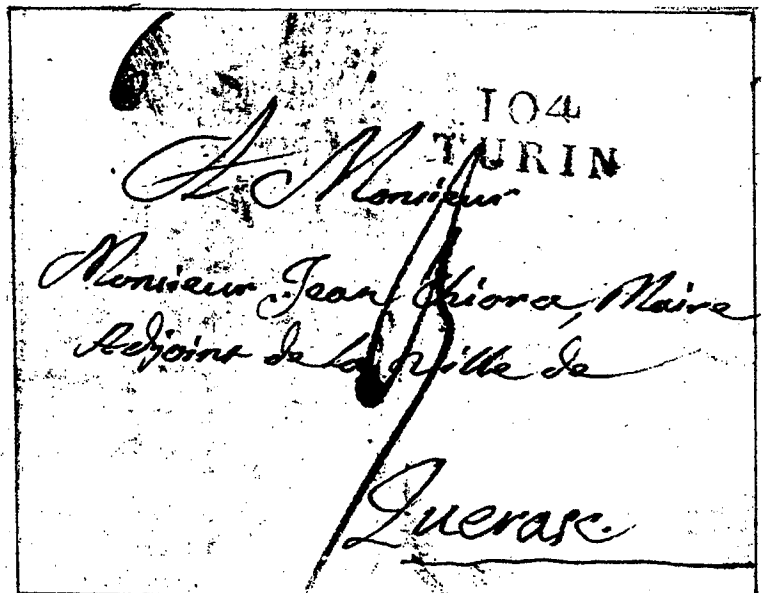 104
TURIN
A Monsieur
Monsieur Jean Chiora, Maire
Adjoint de la ville de
Querasc.